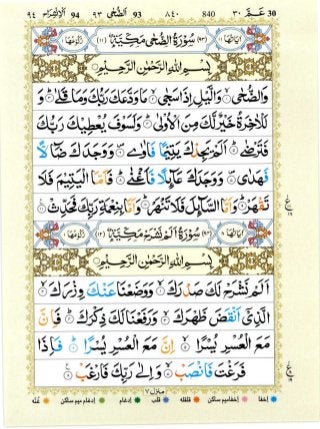 ٩٤ الانشراح 94 ٩٣ الضحى 93 ٨٤٠ 840 ٣٠ عم 30
اٰيَاتُهَا ١١ (٩٣) سُوْرَةُ الضُّحٰى مَكِّيَّةٌ (١١) رُكُوْعُهَا ١
بِسْمِ اللهِ الرَّحْمٰنِ الرَّحِيْمِ
وَالضُّحٰى ۙ وَالَّيْلِ اِذَا سَجٰى ۙ مَا وَدَّعَكَ رَبُّكَ وَمَا قَلٰى ؕ وَ
لَلْاٰخِرَةُ خَيْرٌ لَّكَ مِنَ الْاُوْلٰى ؕ وَلَسَوْفَ يُعْطِيْكَ رَبُّكَ
فَتَرْضٰى ؕ اَلَمْ يَجِدْكَ يَتِيْمًا فَاٰوٰى ۪ وَوَجَدَكَ ضَآلًّا
فَهَدٰى ۪ وَوَجَدَكَ عَآئِلًا فَاَغْنٰى ؕ فَاَمَّا الْيَتِيْمَ فَلَا
تَقْهَرْ ؕ وَاَمَّا السَّآئِلَ فَلَا تَنْهَرْ ؕ وَاَمَّا بِنِعْمَةِ رَبِّكَ فَحَدِّثْ
اٰيَاتُهَا ٨ (٩٤) سُوْرَةُ اَلَمْ نَشْرَحْ مَكِّيَّةٌ (١٢) رُكُوْعُهَا ١
بِسْمِ اللهِ الرَّحْمٰنِ الرَّحِيْمِ
اَلَمْ نَشْرَحْ لَكَ صَدْرَكَ ۙ وَوَضَعْنَا عَنْكَ وِزْرَكَ ۙ
الَّذِيْٓ اَنْقَضَ ظَهْرَكَ ۙ وَرَفَعْنَا لَكَ ذِكْرَكَ ؕ فَاِنَّ
مَعَ الْعُسْرِ يُسْرًا ۙ اِنَّ مَعَ الْعُسْرِ يُسْرًا ؕ فَاِذَا
فَرَغْتَ فَانْصَبْ ۙ وَاِلٰى رَبِّكَ فَارْغَبْ
منزل ٧
اخفا اخفامیم ساکن قلقله قلب ادغام ادغام میم ساکن غنه